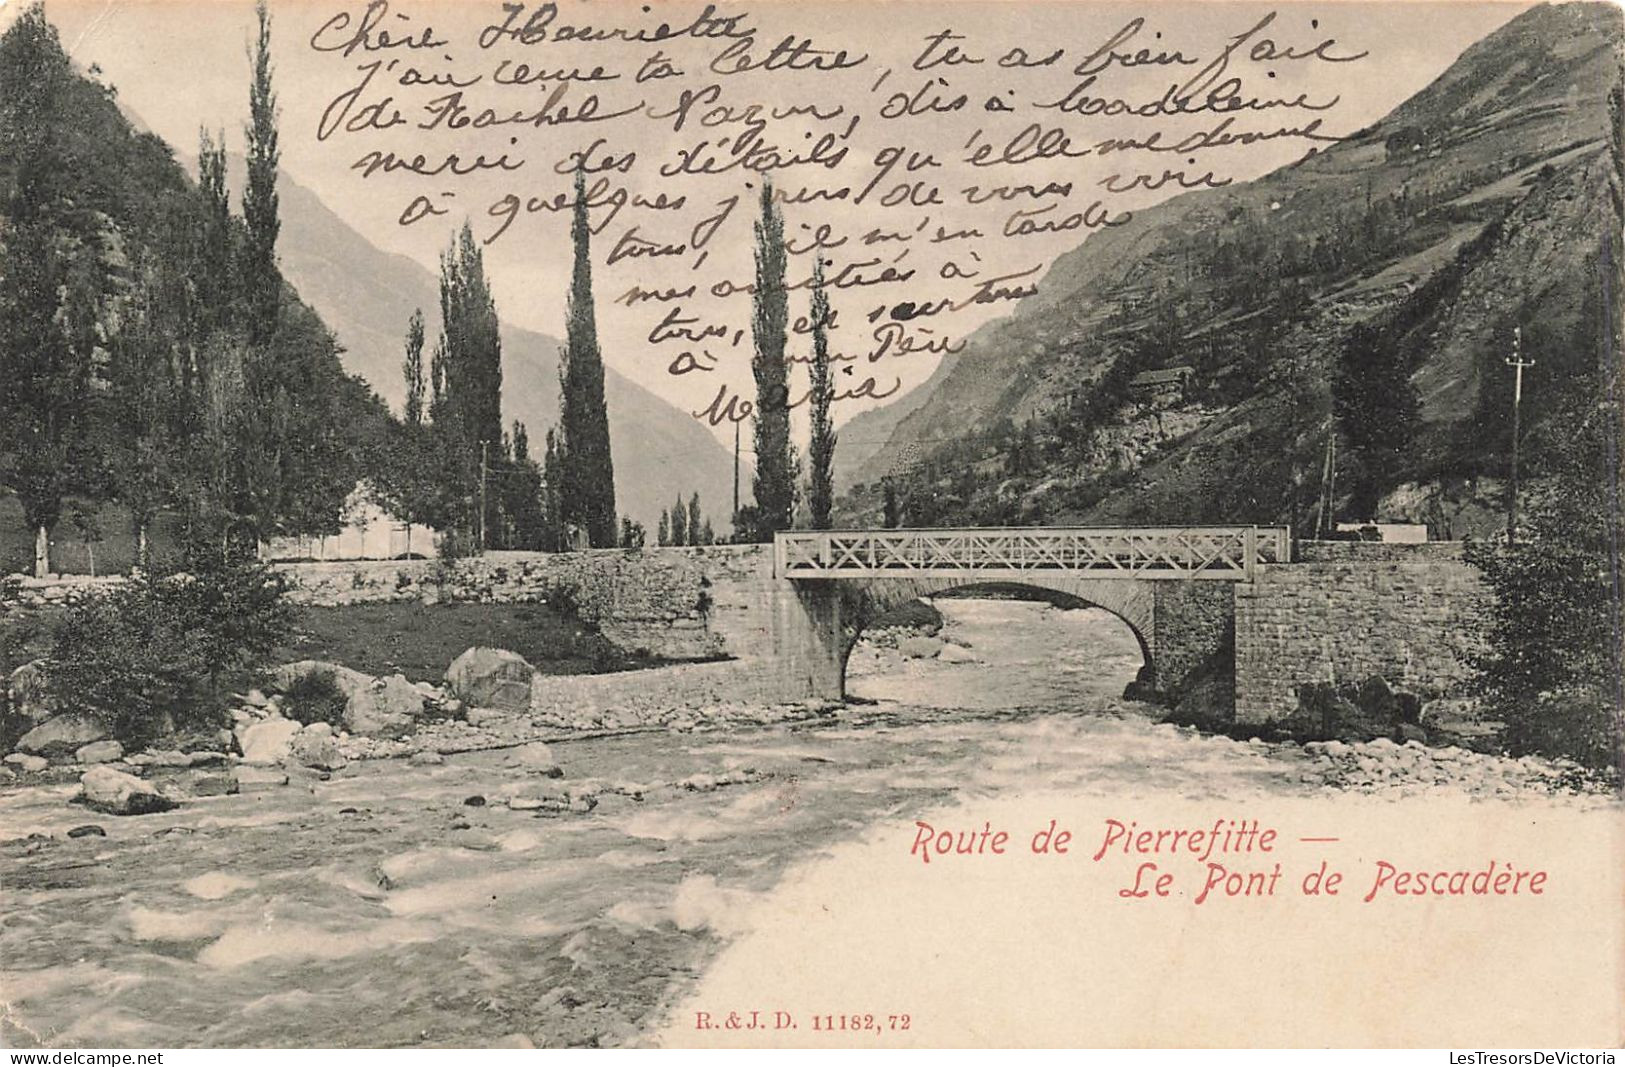 Chère Henriette
J'ai reçue ta lettre, tu as bien fait
de Rachel Nazur, dis à Madeleine
merci des détails qu'elle me donne
à quelques jours de vous voir
tous, il m'en tarde
mes amitiés à
tous, et surtout
à mon Père
Maria
Route de Pierrefitte —
Le Pont de Pescadère
R. & J. D. 11182, 72
LesTresorsDeVictoria